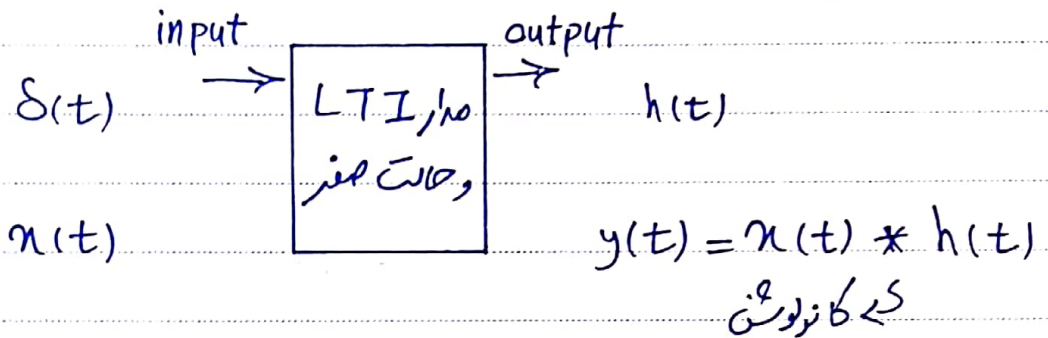 input output
δ(t) مدار LTI h(t)
و حالت صفر
x(t) y(t) = x(t) * h(t)
کانولوشن